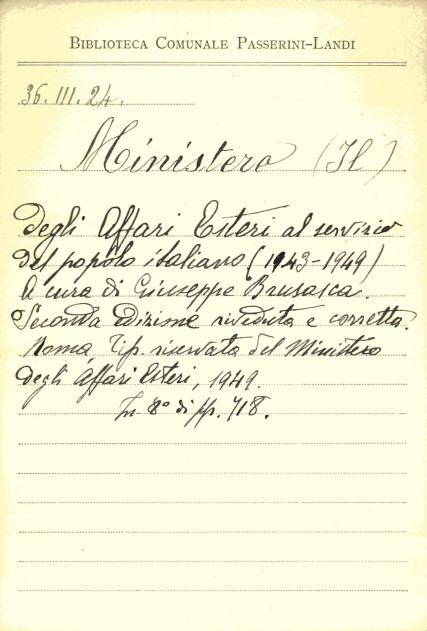 BIBLIOTECA COMUNALE PASSERINI-LANDI
36.III.24.
Ministero (Il)
degli Affari Esteri al servizio
del popolo italiano (1943-1949)
A cura di Giuseppe Brusasca.
Seconda edizione riveduta e corretta.
Roma, Tip. riservata del Ministero
degli Affari Esteri, 1949.
In 8° di pp. 718.